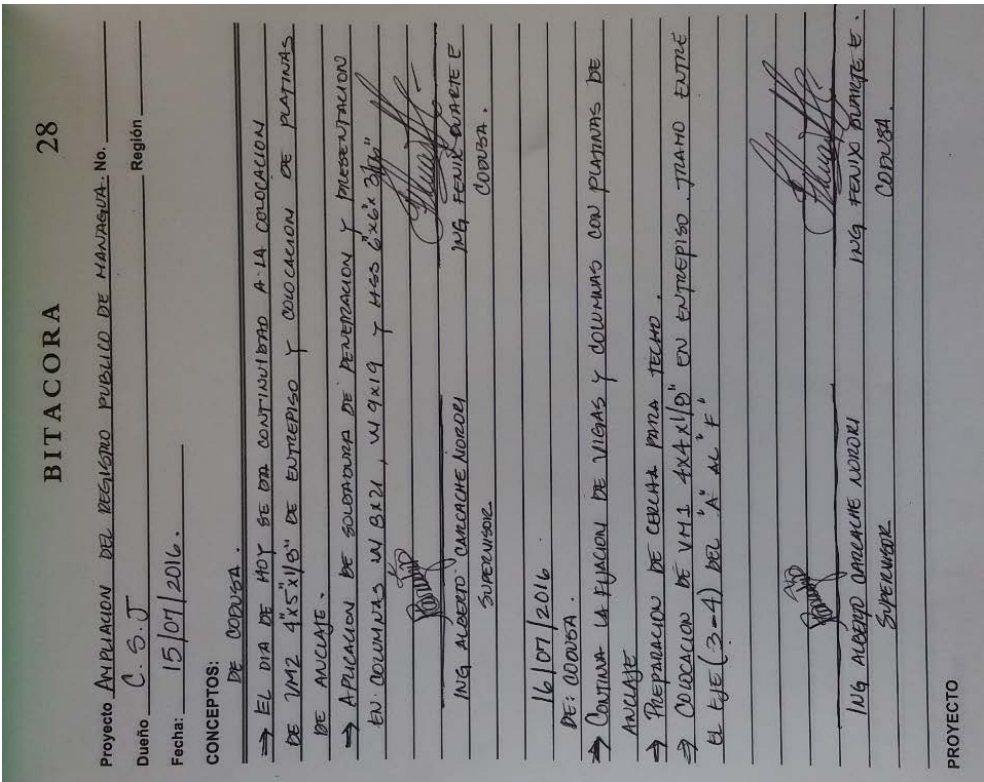 BITACORA 28
Proyecto AMPLIACION DEL REGISTRO PUBLICO DE MANAGUA. No.
Dueño C. S. J Región
Fecha: 15/07/2016.
CONCEPTOS:
DE CODUSA.
⇒ EL DIA DE HOY SE DA CONTINUIDAD A LA COLOCACION
DE VM2 4"x5"x1/8" DE ENTREPISO Y COLOCACION DE PLATINAS
DE ANCLAJE.
→ APLICACION DE SOLDADURA DE PENETRACION Y PRESENTACION
EN COLUMNAS W 8x21, W 9x19 Y HSS 6"x6"x 3/16"
ING ALBERTO CARCACHE NORORI ING FENIX DUARTE E
SUPERVISOR CODUSA.
16/07/2016
DE: CODUSA.
⇒ CONTINA LA FIJACION DE VIGAS Y COLUMNAS CON PLATINAS DE
ANCLAJE
⇒ PREPARACION DE CERCHA PARA TECHO.
⇒ COLOCACION DE VM1 4x4x1/8" EN ENTREPISO. TRAMO ENTRE
EL EJE (3-4) DEL "A" AL "F"
ING ALBERTO CARCACHE NORORI ING FENIX DUARTE E.
SUPERVISOR CODUSA.
PROYECTO